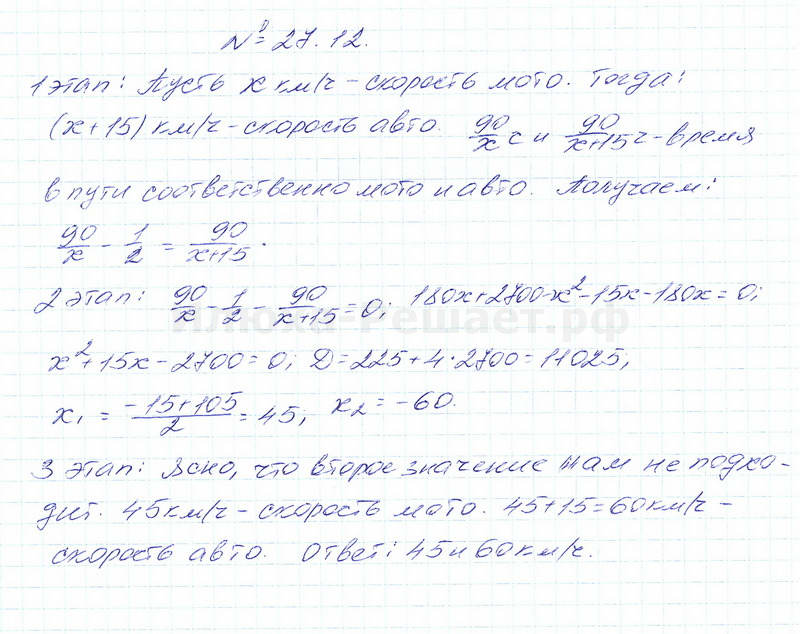 № 27.12.
1 этап: Пусть x км/ч – скорость мото. Тогда:
(x+15) км/ч – скорость авто. 90/x ч и 90/x+15 ч – время
в пути соответственно мото и авто. Получаем:
90/x - 1/2 = 90/x+15.
2 этап: 90/x - 1/2 - 90/x+15 = 0; 180x+2700-x²-15x-180x=0;
Илюха-Решает.рф
x²+15x-2700=0; D=225+4·2700=11025;
x₁ = -15+105/2 = 45; x₂ = -60.
3 этап: Ясно, что второе значение нам не подхо-
дит. 45км/ч – скорость мото. 45+15=60км/ч –
скорость авто. Ответ: 45 и 60км/ч.